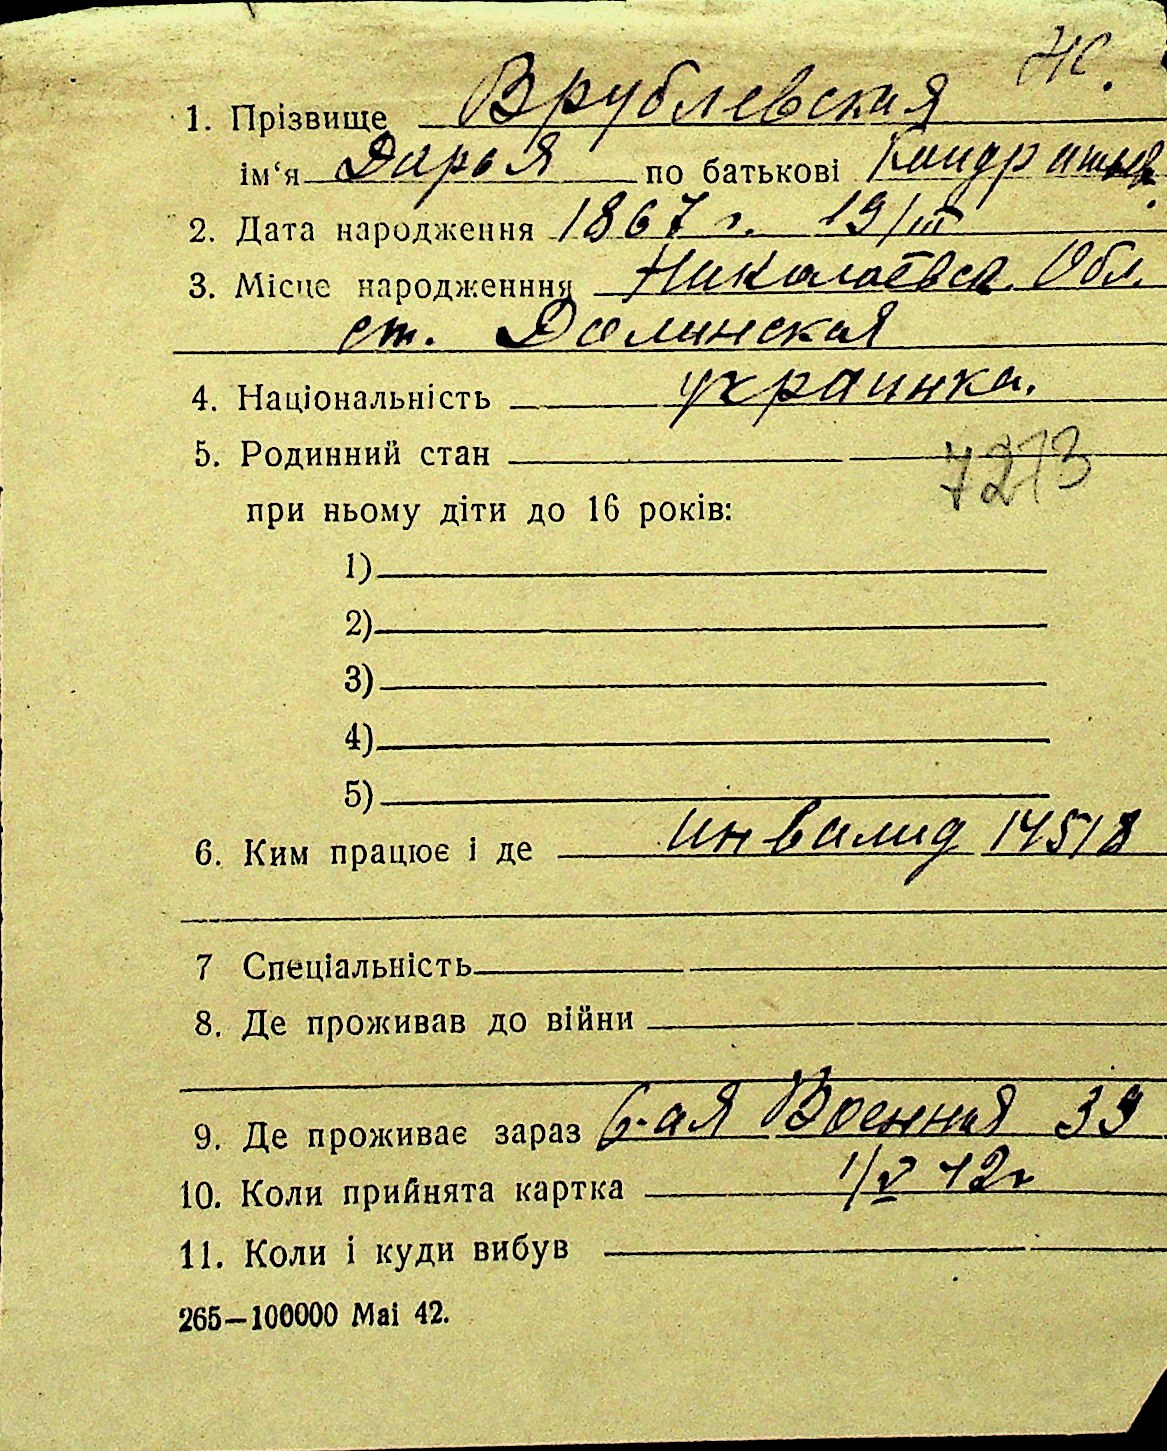 Ж.
1. Прізвище Врублевская
ім‘я Дарья по батькові Кондратьев.
2. Дата народження 1867 г. 19/III
3. Місце народженння Николаевск. Обл.
ст. Долинская
4. Національність украинка.
5. Родинний стан
7213
при ньому діти до 16 років:
1)
2)
3)
4)
5)
6. Ким працює і де инвалид 14518
7 Спеціальність
8. Де проживав до війни
9. Де проживає зараз 6-ая Военная 39
10. Коли прийнята картка 1/V 42г
11. Коли і куди вибув
265—100000 Mai 42.